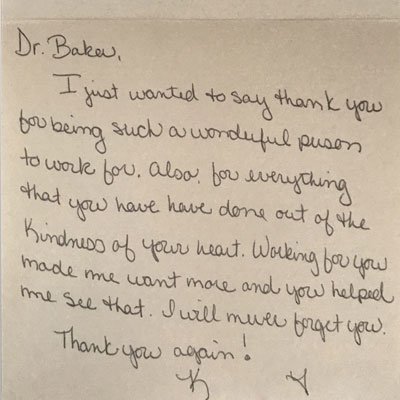 Dr. Baker,
I just wanted to say thank you
for being such a wonderful person
to work for. Also, for everything
that you have have done out of the
kindness of your heart. Working for you
made me want more and you helped
me see that. I will never forget you.
Thank you again!
K